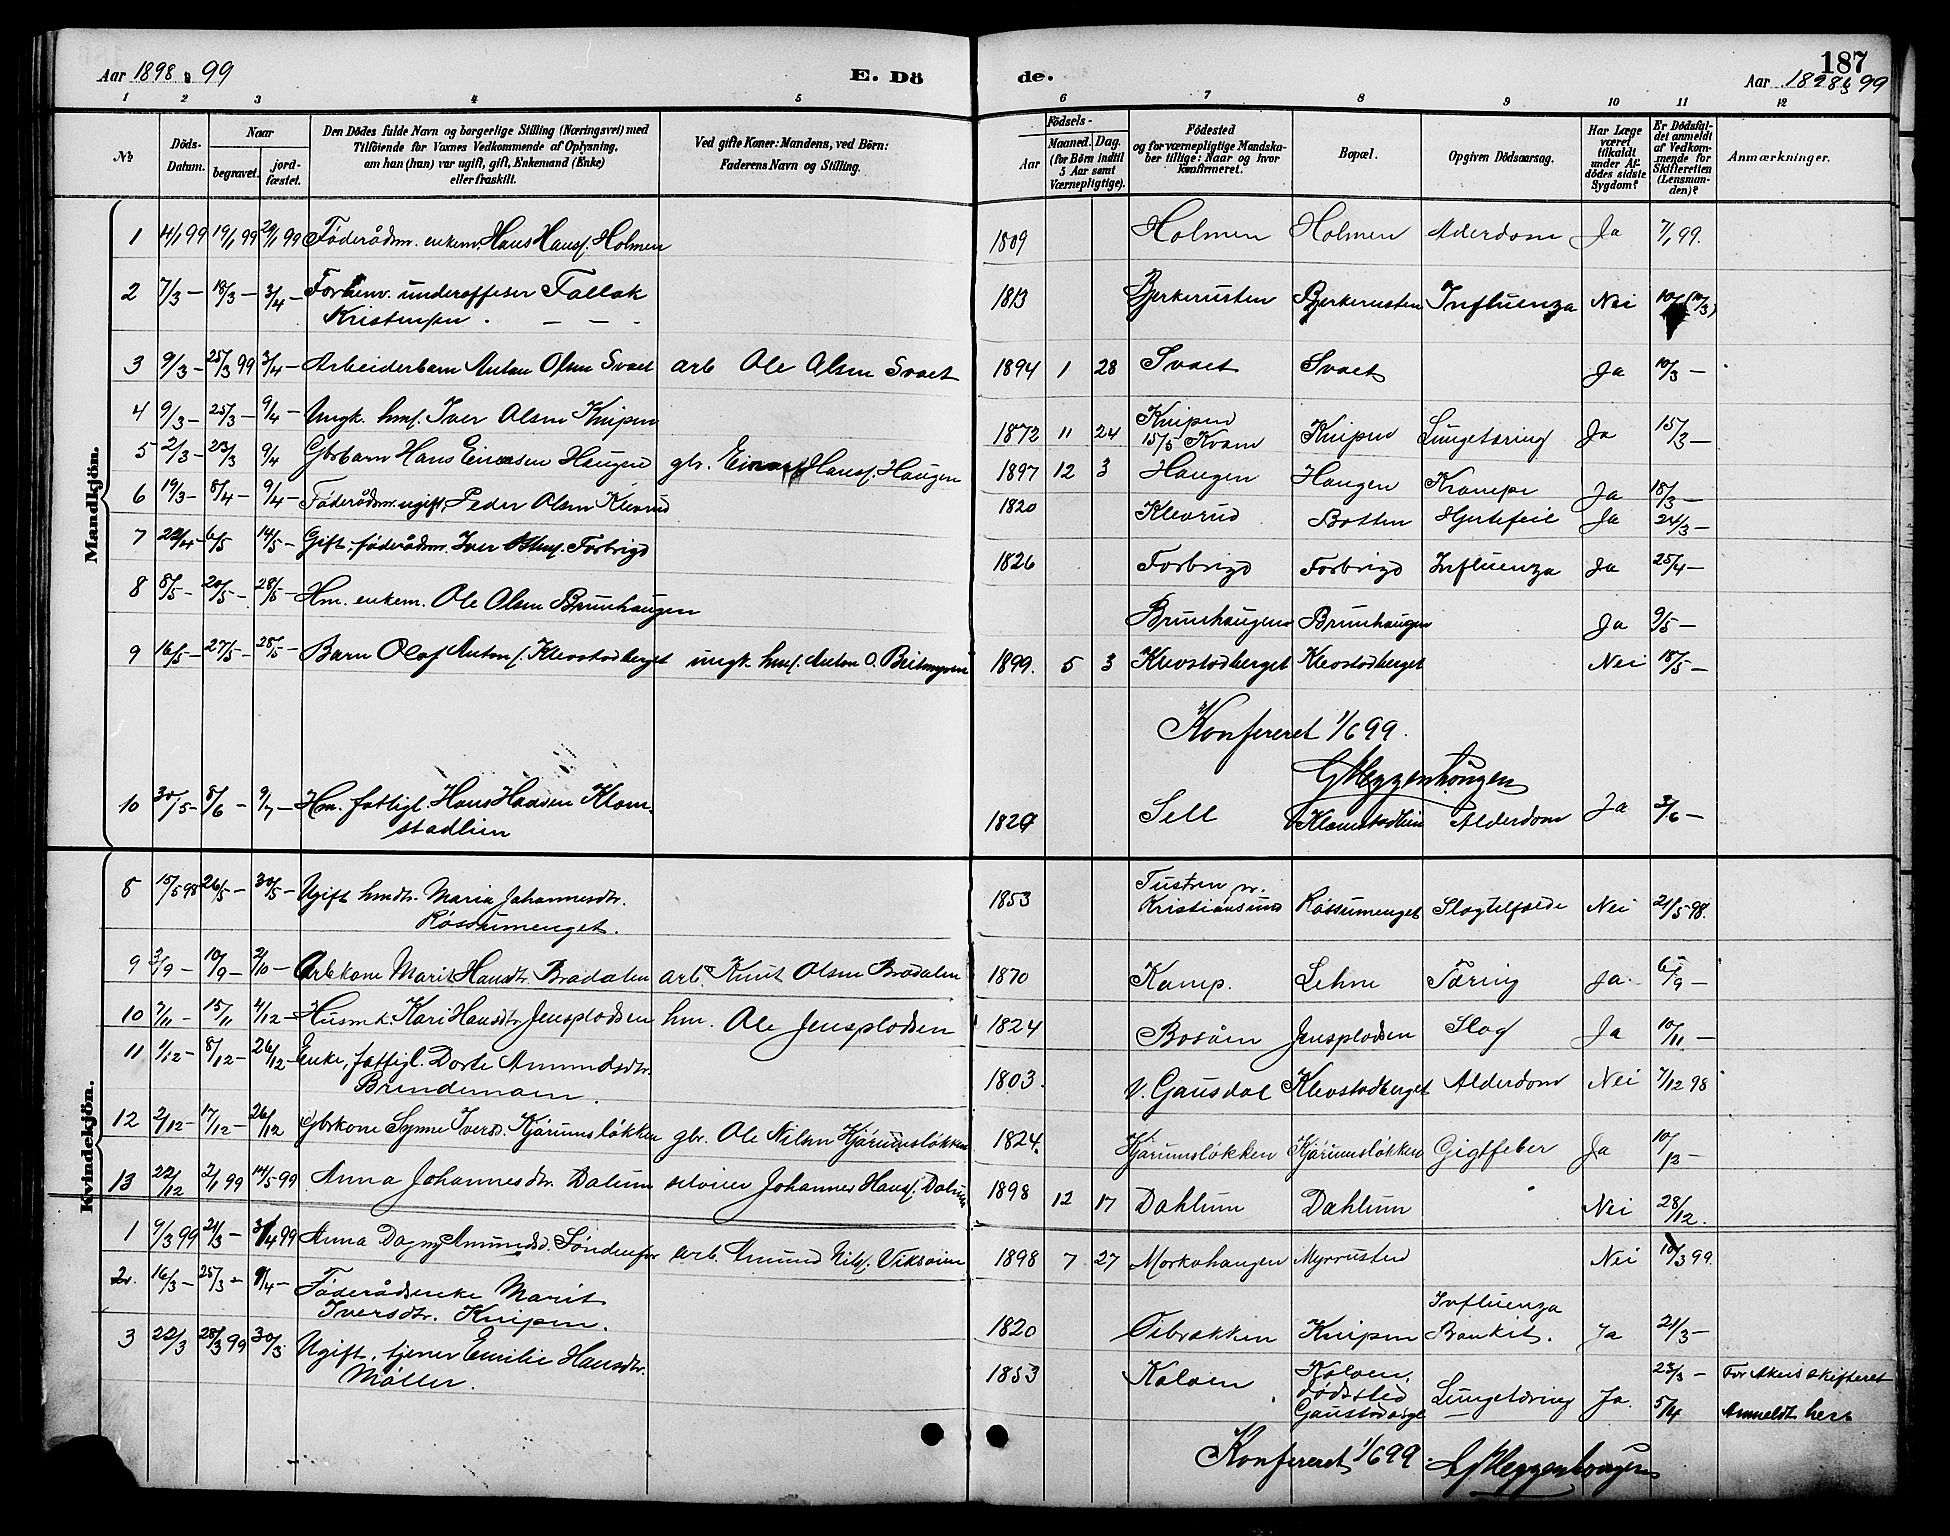 Aar 1898 & 99 E. Dö de. Aar 1898 & 99 187
1 2 3 4 5 6 7 8 9 10 11 12
No. Döds-Datum. Naar begravet. jord-fæstet. Den Dödes fulde Navn og borgerlige Stilling (Næringsvei) med Tilföiende for Voxnes Vedkommende af Oplysning, om han (hun) var ugift, gift, Enkemand (Enke) eller fraskilt. Ved gifte Koner: Mandens, ved Börn: Faderens Navn og Stilling. Födsels- Aar Maaned. Dag. (for Börn indtil 5 Aar samt Værnepligtige). Födested og for værnepligtige Mandskaber tillige: Naar og hvor konfirmeret. Bopæl. Opgiven Dödsaarsag. Har Læge været tilkaldt under Afdödes sidste Sygdom? Er Dödsfaldet anmeldt af Vedkommende for Skifteretten (Lensmanden)? Anmærkninger.
Mandkjön.
1 4/1 99 19/1 99 29/1 99 Föderådm. enkem. Hans Hansf. Holmen 1809 Holmen Holmen Alderdom Ja 7/1 99.
2 7/3 — 18/3 — 3/4 — Forhenv. underofficer Tollak 1813 Bjerkerusten Bjerkerusten Influenza Nei
Kristensen . — — .
3 9/3 — 25/3 99 3/4 — Arbeiderbarn Anton Olsen Svaet arb Ole Olsen Svaet 1894 1 28 Svaet Svaet Ja 10/3 —
4 9/3 — 25/3 — 9/4 — Ungk. hmf. Iver Olsen Knipen 1872 11 24 Knipen 15/5 Kvam Knipen Lungetæring Ja 15/3 —
5 2/3 — 25/3 9/4 Gbrbarn Hans Einarsen Haugen gbr. Einar Hansf. Haugen 1897 12 3 Haugen Haugen Krampe Ja 18/3 —
6 19/3 — 8/4 — 9/4 — Föderådm. ugift, Peder Olsen Klevrud 1820 Klevrud Botten Hjertefeil Ja 24/3 —
7 22/4 — 6/5 14/5 — Gift föderådm. Iver Forbrigd 1826 Forbrigd Forbrigd Influenza Ja 25/4 —
8 8/5 — 20/5 — 28/5 — Hm. enkem. Ole Olsen Brunhaugen Brunhaugen Brunhaugen Ja 9/5 —
9 16/5 — 27/5 — 28/5 — Barn Olaf Anton f. Klevstadberget ungk. hmf. Anton O. 1899. 5 3 Klevstadberget Klevstadberget Nei 18/5 —
Konfereret 1/6 99.
G Heggenhougen
10 30/5 — 8/6 — 9/7 — Hm. fattigl. Hans Hansen Klom- Sell Klomstadlien Alderdom Ja 3/6 —
stadlien
Kvindekjön.
8 15/5 98 26/5 — 30/5 — Ugift hmdtr. Maria Johannesdtr. 1853 Tustren pr. Kristiansund Røssumenget Slagtilfælde Nei 21/5 98.
Røssumenget.
9 3/9 — 10/9 — 2/10 — Arbkone Marit Hansdtr Brådalen arb. Knut Olsen Brådalen 1870 Kamp. Lehne Tæring Ja 6/9 —
10 7/11 — 15/11 4/12 — Husm.k. Kari Hansdtr Jensplodsen hm. Ole Jensplodsen 1824 Bosåen Jensplodsen Slag Ja 10/11 —
11 1/12 — 8/12 — 26/12 — Enke, fattigl. Dorte Amundsdtr. 1803. V. Gausdal Klevstadberget Alderdom Nei 7/12 98
Brendemoen.
12 2/12 — 17/12 — 26/12 Gbrkone Synne Iversd. Kjörumsløkken gbr. Ole Nilsen Kjörumsløkken 1824. Kjörumsløkken Kjörumsløkken Gigtfeber Ja 10/12 —
13 22/12 2/1 99 14/5 99 Anna Johannesdtr. Dalum selveier Johannes Hansf. Dalum 1898 12 17 Dahlum Dahlum Nei 28/12.
1 9/3 99 21/3 — 3/4 99 Anna Dagny Amundsd. arb. Amund Nilsf. Viksöien 1898 7 27 Morkahaugen Myrrusten Nei 10/3 99.
2. 16/3 — 25/3 — 9/4 — Föderådsenke Marit 1820 Knipen Influenza Ja 21/3 —
Iversdtr. Knipen.
3 22/3 28/3 99 30/3 Ugift, tjener Emilie Hansdtr. 1853 Kolven Kolven, dødssted Gaustad asyl Lungetæring Ja. 23/3 — For Akers skifteret
Møller. 5/4 Anmeldt her
Konfereret 1/6 99. G Heggenhougen